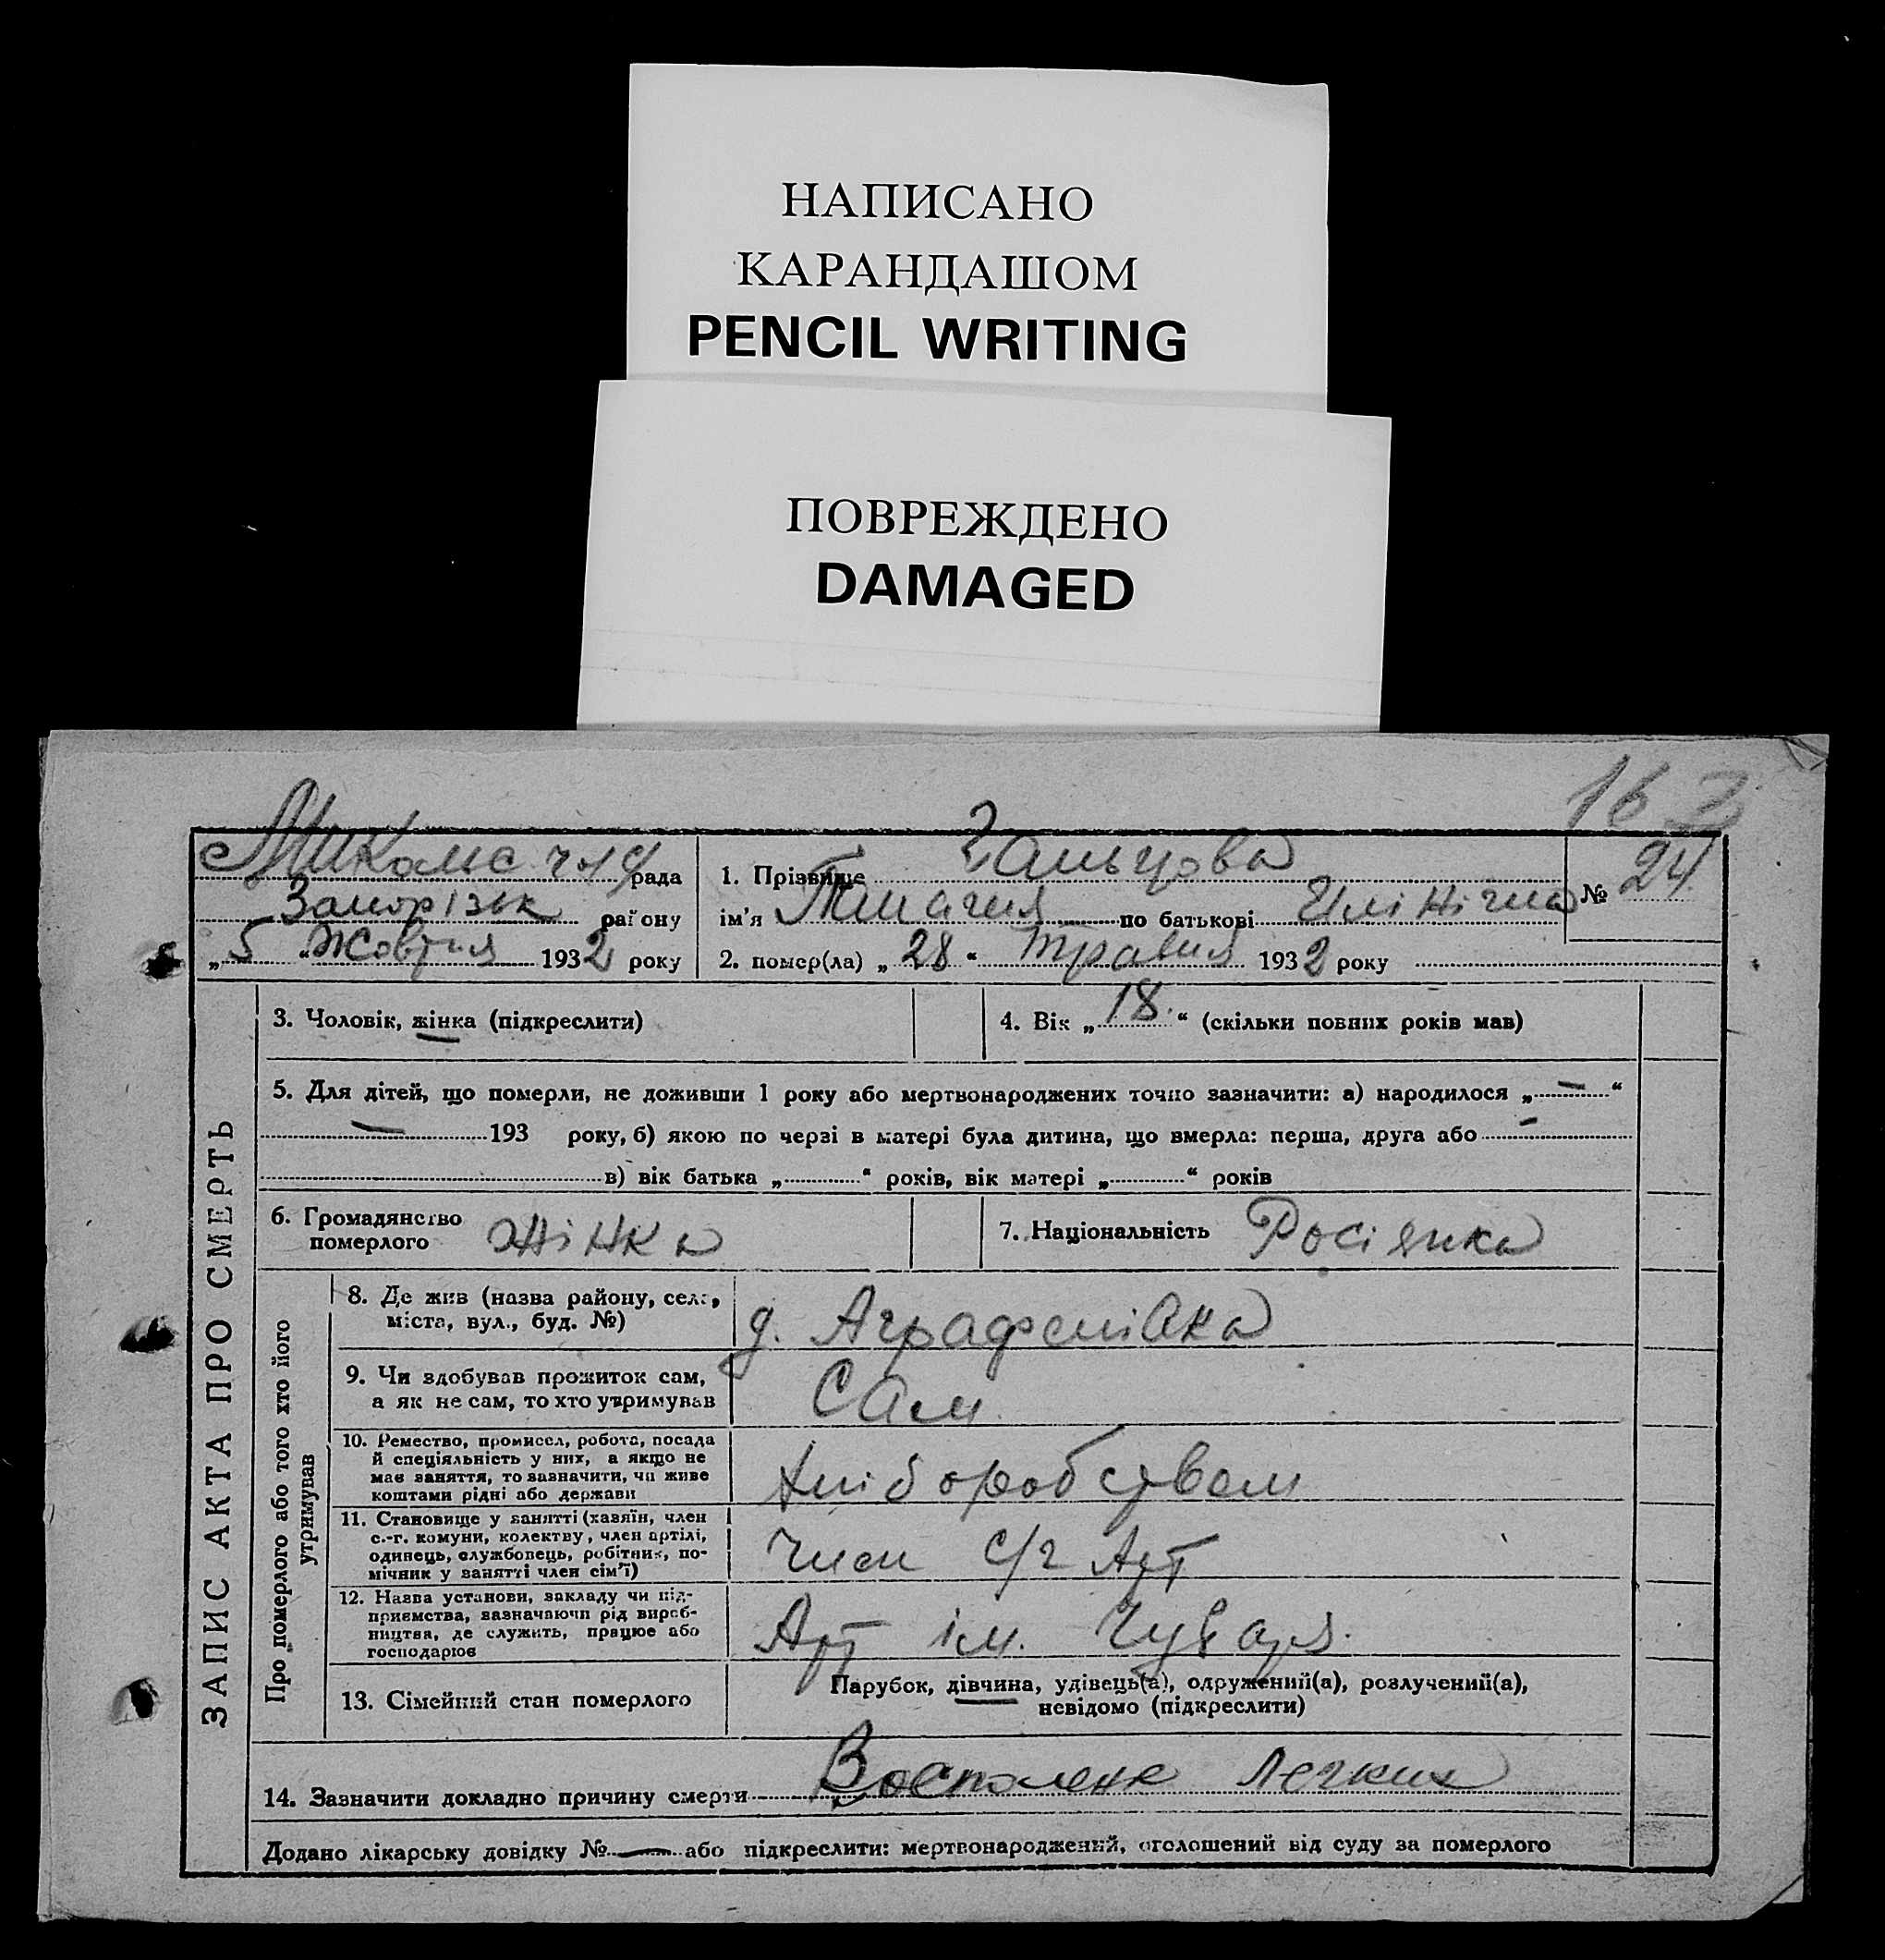 НАПИСАНО
КАРАНДАШОМ
PENCIL WRITING
ПОВРЕЖДЕНО
DAMAGED
16
рада
району
„5“ Жовтня 1932 року
1. Прізвище Гальцова
ім'я по батькові Ілінічна
№ 24
2. помер(ла) „28“ Травня 1932 року
ЗАПИС АКТА ПРО СМЕРТЬ
3. Чоловік, жінка (підкреслити)
4. Вік „18“ (скільки повних років мав)
5. Для дітей, що померли, не доживши 1 року або мертвонароджених точно зазначити: а) народилося „—“
— 193 року, б) якою по черзі в матері була дитина, що вмерла: перша, друга або —
в) вік батька „ “ років, вік матері „ “ років
6. Громадянство
померлого жінка
7. Національність Росіянка
Про померлого або того хто його
утримував
8. Де жив (назва району, села,
міста, вул., буд. №)
д. Аграфенівка
9. Чи здобував прожиток сам,
а як не сам, то хто утримував
Сам
10. Ремество, промисел, робота, посада
й спеціяльність у них, а якщо не
має заняття, то зазначити, чи живе
коштами рідні або держави
Хліборобством
11. Становище у занятті (хазяїн, член
с.-г. комуни, колективу, член артілі,
одинець, службовець, робітник, по-
мічник у занятті член сім'ї)
Член с/г Арт
12. Назва установи, закладу чи під-
приємства, зазначаючи рід вироб-
ництва, де служить, працює або
господарює
Арт ім. Чубаря
13. Сімейний стан померлого
Парубок, дівчина, удівець(а), одружений(а), розлучений(а),
невідомо (підкреслити)
14. Зазначити докладно причину смерти Воспаленк Легких
Додано лікарську довідку №— або підкреслити: мертвонароджений, оголошений від суду за померлого